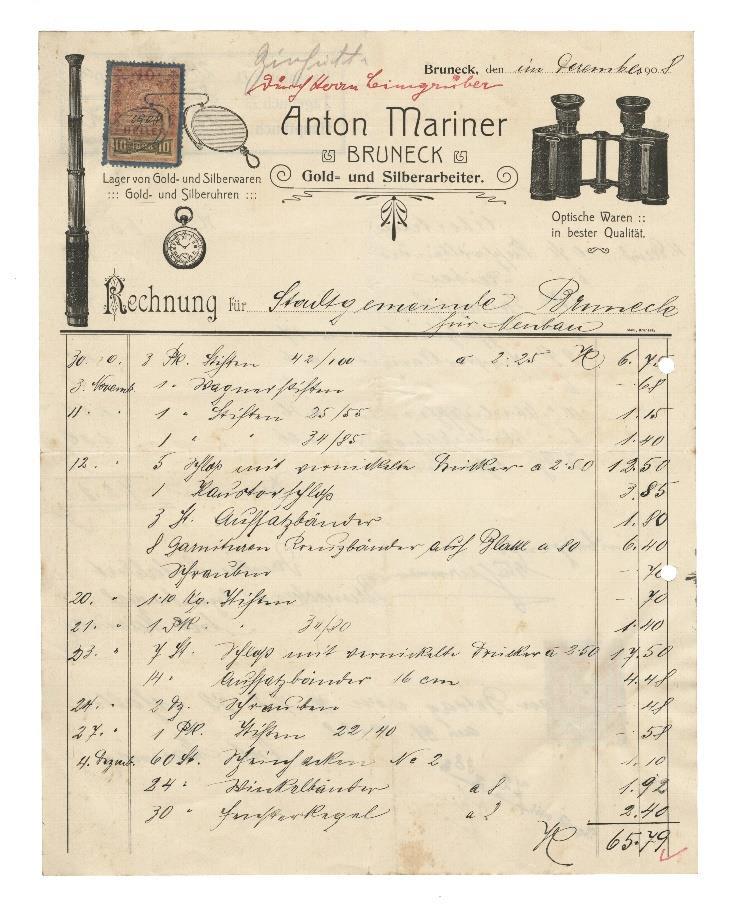 Bruneck, den im Dezember 1908
durch Herrn Leimgruber
10 HELLER 10
Anton Mariner
BRUNECK
Gold- und Silberarbeiter.
Lager von Gold- und Silberwaren
::: Gold- und Silberuhren :::
Optische Waren ::
in bester Qualität.
Rechnung Für Stadtgemeinde Bruneck
für Neubau
30. 10. 3 Pk. Stiften 42/100 a 2.25 K 6.75
3. Novemb. 1 " Wagnerstiften - 68
11. " 1 " Stiften 25/55 1.15
1 " " 34/85 1.40
12. " 5 Schloß mit vernickelte Drücker a 2.50 12.50
1 Haustorschloß 3.85
3 St. Aufsatzbänder 1.80
8 Garnituren Kreuzbänder a 80 6.40
Schrauben - 70
20. " 1.10 Kg. Stiften - 70
21. " 1 Pk. " 34/80 1.40
23. " 7 St. Schloß mit vernickelte Drücker a 2.50 17.50
14 " Aufsatzbänder 16 cm 4.48
24. " 2 Dz. Schrauben - 48
27. " 1 Pk. Stiften 22/40 - 58
4. Dezemb. 60 St. No 2 1.10
24 " Winkelbänder a 8 1.92
30 " Fensterkegel a 2.40
K 65.79